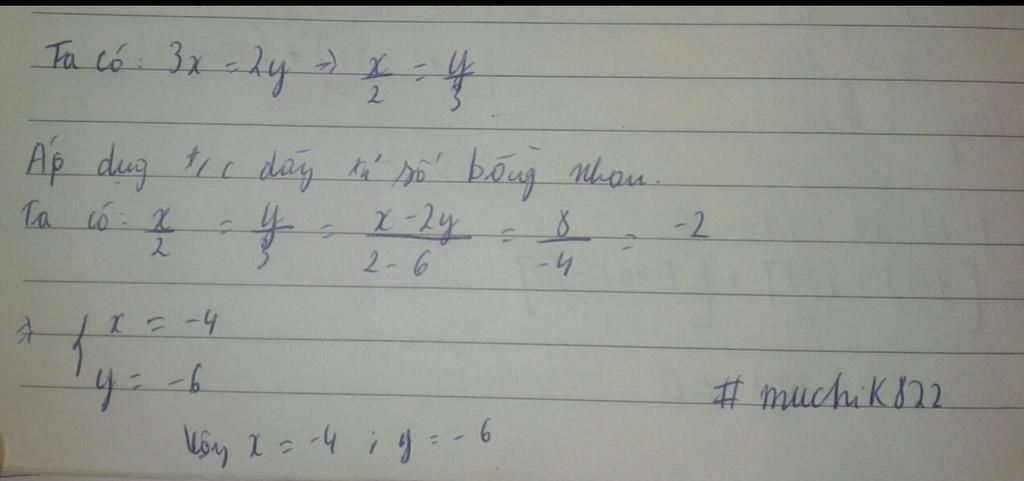 Ta có: 3x = 2y => x/2 = y/3
Áp dụg t/c dãy tỉ số bằng nhau.
Ta có: x/2 = y/3 = x-2y/2-6 = 8/-4 = -2
=> { x = -4
y = -6
# muchiK822
Vậy x = -4 ; y = -6